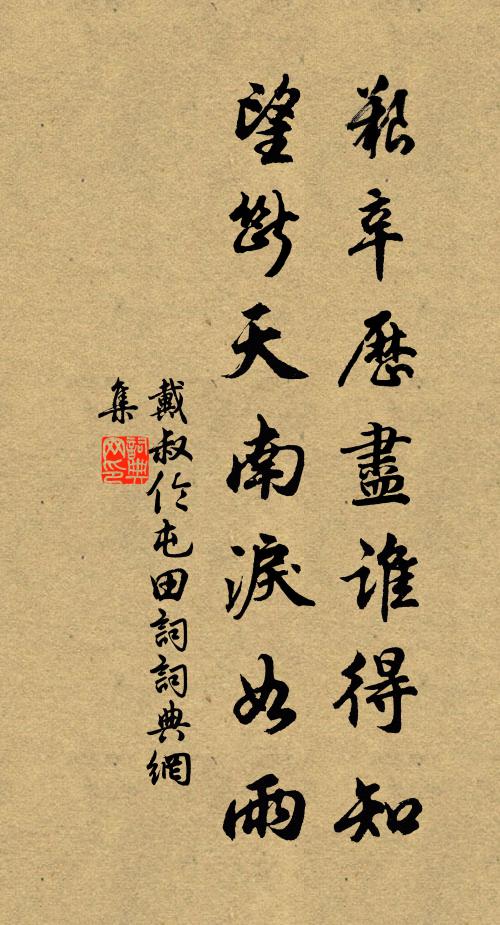 艱辛歷盡誰得知
望斷天南淚如雨
戴叔伦屯田詞詞典網
集
詞典網印